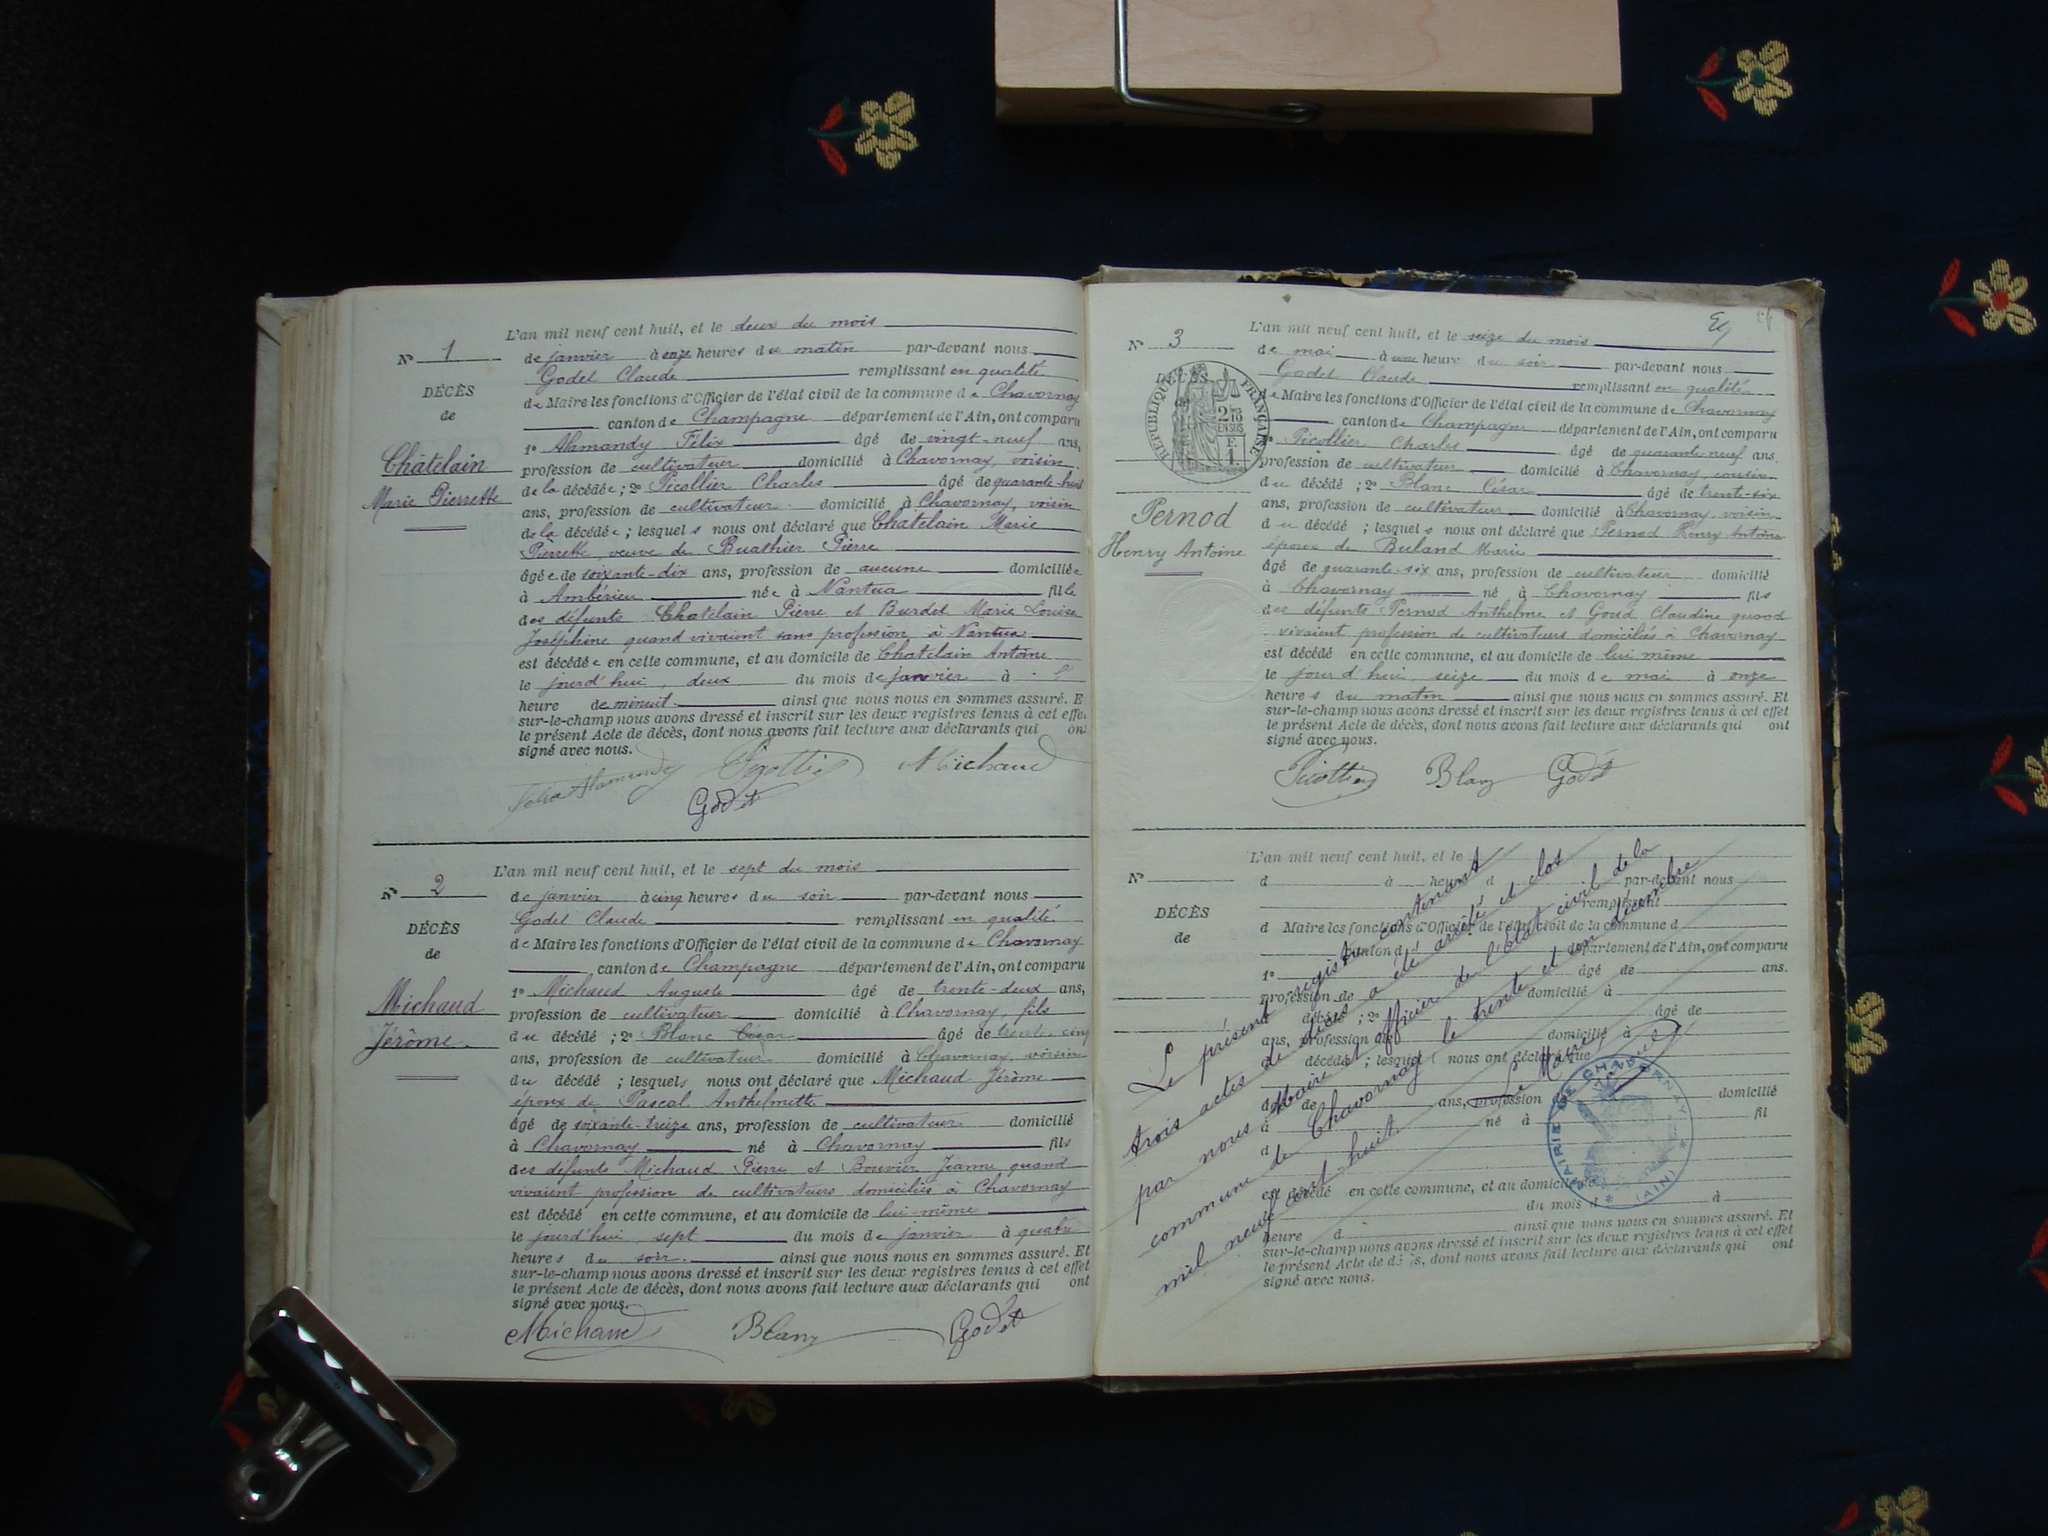 L'an mil neuf cent huit, et le deux du mois
N° 1
de janvier à onze heures du matin par-devant nous
Godet Claude remplissant en qualité
DÉCÈS
de Maire les fonctions d'Officier de l'état civil de la commune de Chavornay
de
canton de Champagne département de l'Ain, ont comparu
1° Alamandy Félix âgé de vingt-neuf ans,
Châtelain
profession de cultivateur domicilié à Chavornay, voisin
Marie Pierrette
de la décédée ; 2° Picollier Charles âgé de quarante-huit
ans, profession de cultivateur domicilié à Chavornay, voisin
de la décédée ; lesquels nous ont déclaré que Chatelain Marie
Pierrette, veuve de Buathier Pierre
âgée de soixante-dix ans, profession de aucune domiciliée
à Ambérieu née à Nantua fille
des défunts Chatelain Pierre et Burdet Marie Louise
Joséphine quand vivaient sans profession à Nantua
est décédée en cette commune, et au domicile de Chatelain Antoine
le jourd'hui, deux du mois de janvier à
heure de minuit ainsi que nous nous en sommes assuré. E
sur-le-champ nous avons dressé et inscrit sur les deux registres tenus à cet effe
le présent Acte de décès, dont nous avons fait lecture aux déclarants qui on
signé avec nous.
Michaud
Godet
L'an mil neuf cent huit, et le sept du mois
N° 2
de janvier à cinq heures du soir par-devant nous
Godet Claude remplissant en qualité
DÉCÈS
de Maire les fonctions d'Officier de l'état civil de la commune de Chavornay
de
canton de Champagne département de l'Ain, ont comparu
1° Michaud Auguste âgé de trente-deux ans,
Michaud
profession de cultivateur domicilié à Chavornay, fils
Jérôme
du décédé ; 2° Blanc César âgé de trente-cinq
ans, profession de cultivateur domicilié à Chavornay, voisin
du décédé ; lesquels nous ont déclaré que Michaud Jérôme
époux de Pascal Anthelmette
âgé de soixante-treize ans, profession de cultivateur domicilié
à Chavornay né à Chavornay fils
des défunts Michaud Pierre et Bouvier Jeanne quand
vivaient profession de cultivateurs domiciliés à Chavornay
est décédé en cette commune, et au domicile de lui-même
le jourd'hui, sept du mois de janvier à quatre
heures du soir ainsi que nous nous en sommes assuré. Et
sur-le-champ nous avons dressé et inscrit sur les deux registres tenus à cet effet
le présent Acte de décès, dont nous avons fait lecture aux déclarants qui ont
signé avec nous.
Michaud Blanc Godet
L'an mil neuf cent huit, et le seize du mois
N° 3
de mai à une heure du soir par-devant nous
Godet Claude remplissant en qualité
DÉCÈS
RÉPUBLIQUE FRANÇAISE
de Maire les fonctions d'Officier de l'état civil de la commune de Chavornay
canton de Champagne département de l'Ain, ont comparu
1° Picollier Charles âgé de quarante neuf ans
profession de cultivateur domicilié à Chavornay, cousin
du décédé ; 2° Blanc César âgé de trente-six
ans, profession de cultivateur domicilié à Chavornay, voisin
Pernod
du décédé ; lesquels nous ont déclaré que Pernod Henry Antoine
Henry Antoine
époux de Buland Marie
âgé de quarante-six ans, profession de cultivateur domicilié
à Chavornay né à Chavornay fils
des défunts Pernod Anthelme et Goud Claudine quand
vivaient profession de cultivateurs domiciliés à Chavornay
est décédé en cette commune, et au domicile de lui même
le jour d'hui, seize du mois de mai à onze
heures du matin ainsi que nous nous en sommes assuré. Et
sur-le-champ nous avons dressé et inscrit sur les deux registres tenus à cet effet
le présent Acte de décès, dont nous avons fait lecture aux déclarants qui ont
signé avec nous.
Blanc Godet
L'an mil neuf cent huit, et le
N°
d à heure d par-devant nous
remplissant
DÉCÈS
d Maire les fonctions d'Officier de l'état civil de la commune d
de
canton d département de l'Ain, ont comparu
1° âgé de ans.
profession de domicilié à
décédé ; 2° âgé de
ans, profession de domicilié à
décédé ; lesquel nous ont déclaré que
âgé de ans, profession domicilié
à né à fil
d
est décédé en cette commune, et au domicile de
le du mois d à
heure d ainsi que nous nous en sommes assuré. Et
sur-le-champ nous avons dressé et inscrit sur les deux registres tenus à cet effet
le présent Acte de décès, dont nous avons fait lecture aux déclarants qui ont
signé avec nous.
Le présent registre contenant
trois actes de décès a été arrêté et clos
par nous Maire et officier de l'état civil de la
commune de Chavornay le trente et un décembre
mil neuf cent huit
Le Maire
MAIRIE DE CHAVORNAY (AIN)